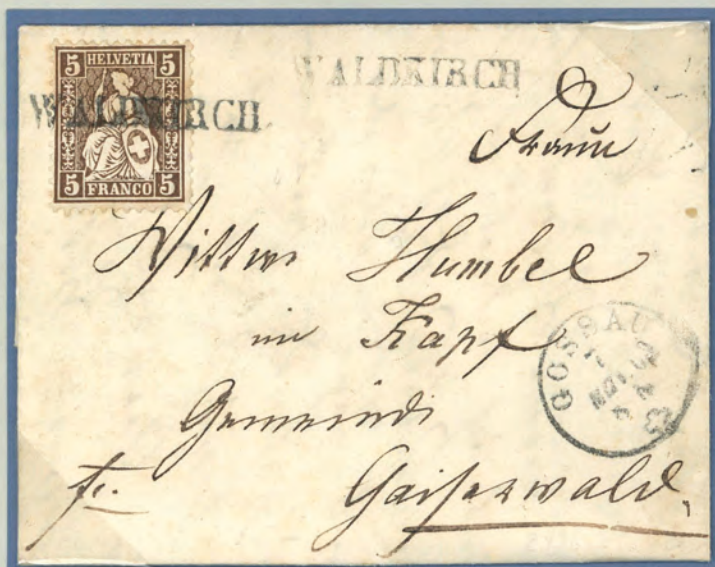 5 HELVETIA 5
5 FRANCO 5
WALDKIRCH
WALDKIRCH
Frau
Wittwe Humbel
im Kapf
Gemeinde
fr. Gaiserwald.
GOSSAU
7 NOV.